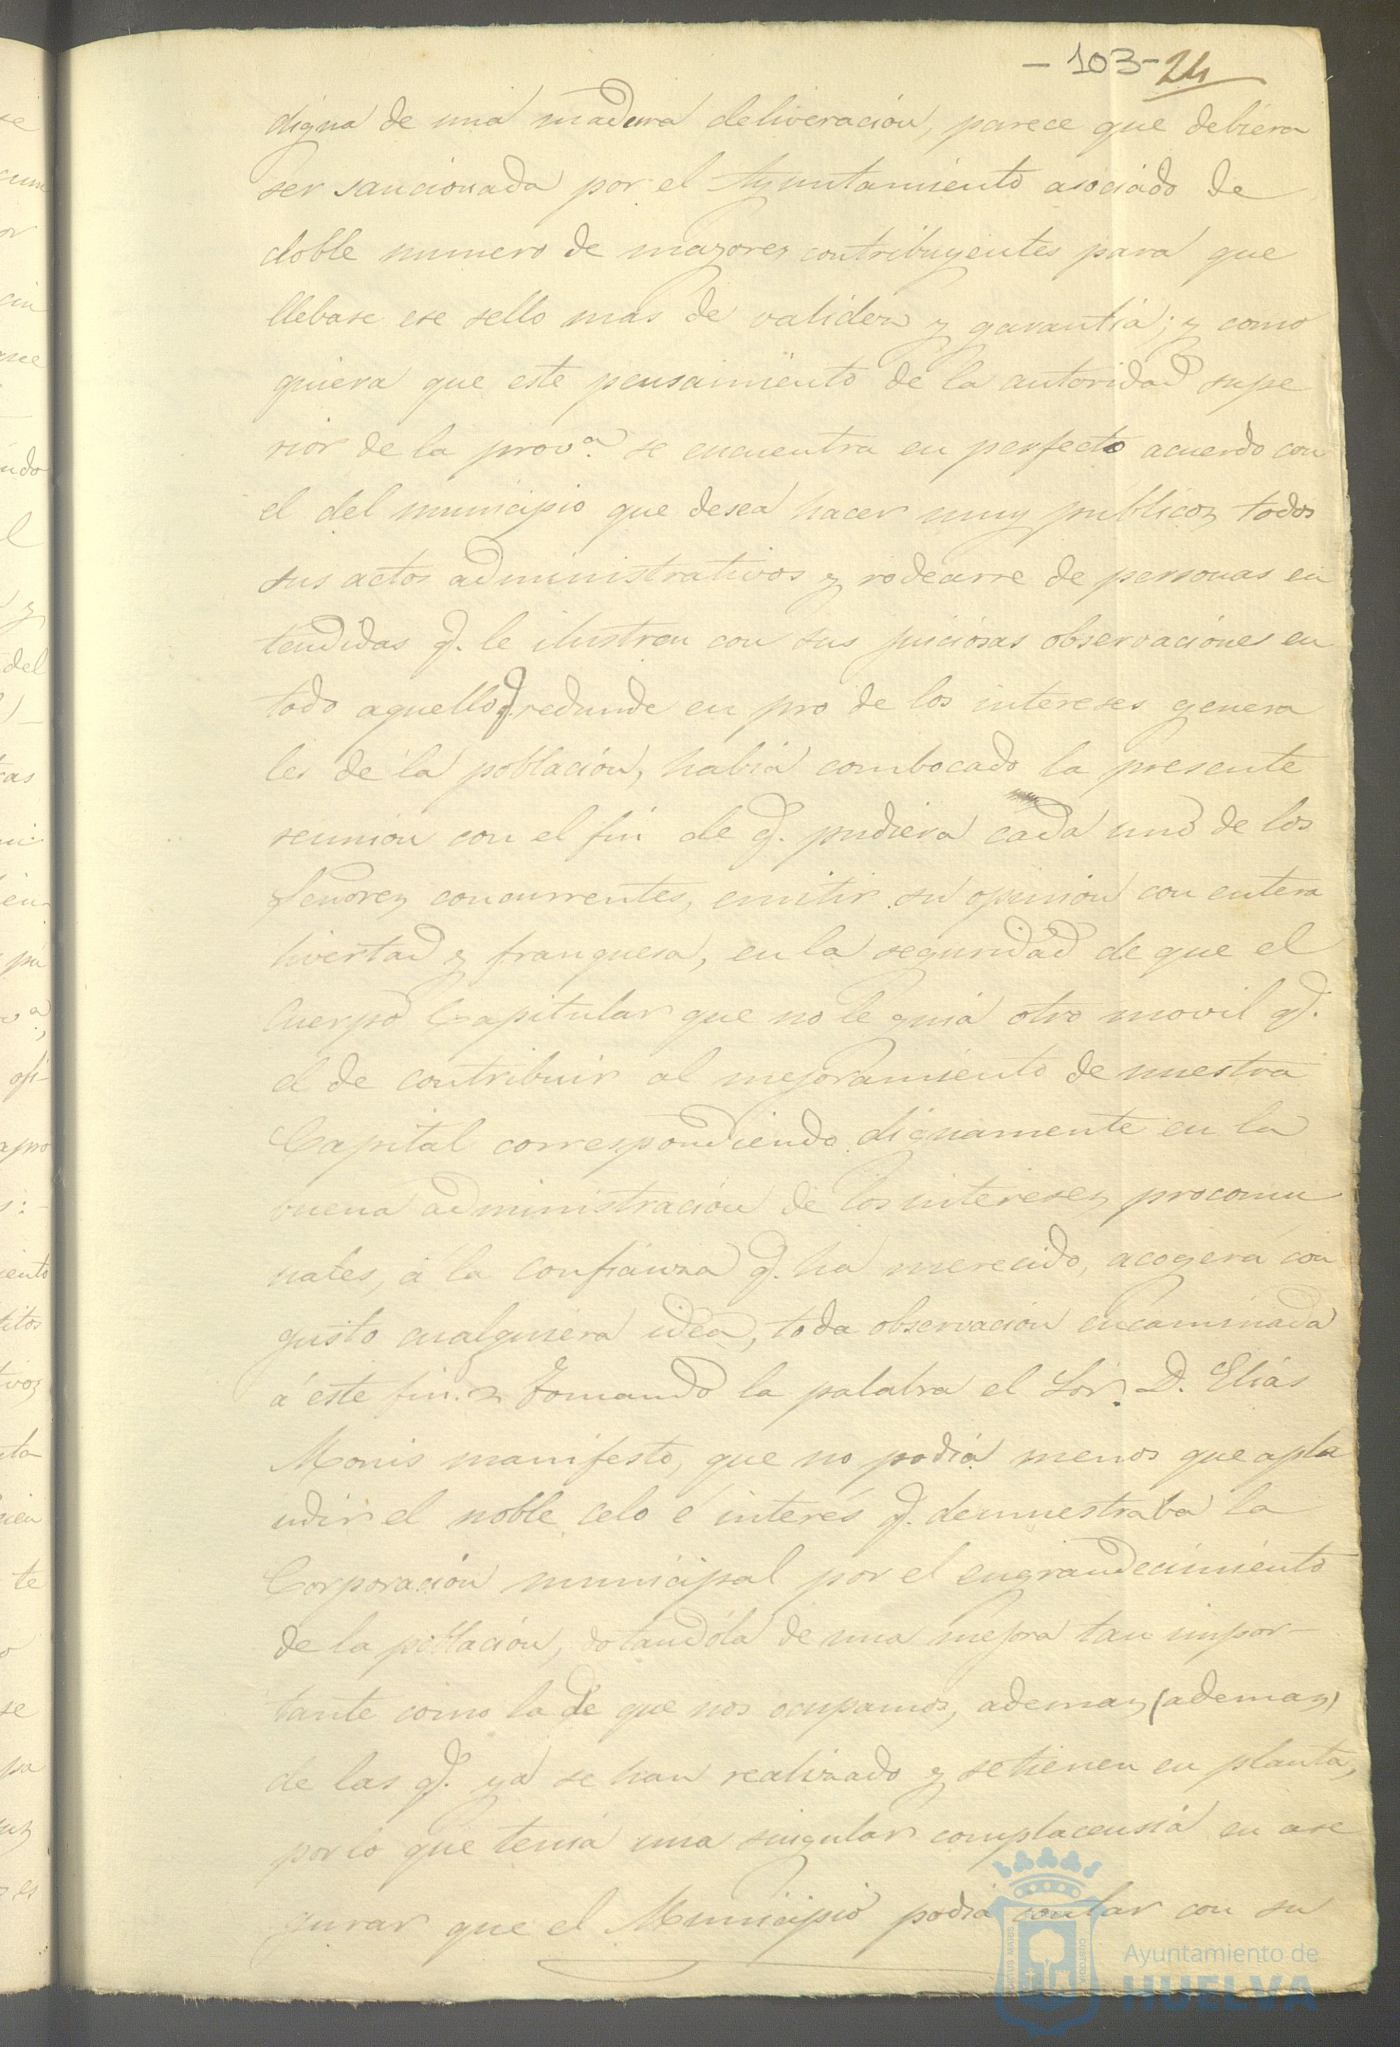 - 103 - 24
digna de una madura deliveración, parece que debiera
ser sancionada por el Ayuntamiento asociado de
doble numero de mayores contribuyentes para que
llebase ese sello mas de validez y garantia; y como
quiera que este pensamiento de la autoridad supe
rior de la prov.ª se encuentra en perfecto acuerdo con
el del municipio que desea hacer muy publicos todos
sus actos administrativos y rodearse de personas en
tendidas q. le ilustren con sus juiciosas observaciones en
todo aquello q. redunde en pro de los intereses genera
les de la población, había combocado la presente
reunion con el fin de q. pudiera cada uno de los
Señores concurrentes, emitir su opinion con entera
livertad y franquesa, en la seguridad de que el
Cuerpo Capitular que no le guia otro movil q.
el de contribuir al mejoramiento de nuestra
Capital correspondiendo dignamente en la
buena administración de los intereses procomu
nales, á la confianza q. ha merecido, acogerá con
gusto cualquiera idea, toda observacion encaminada
á este fin. Tomando la palabra el Sor. D. Elias
Monis manifesto, que no podia menos que apla
udir el noble celo é interés q. demuestraba la
Corporación municipal por el engrandecimiento
de la población, dotandola de una mejora tan impor-
tante como la de que nos ocupamos, ademas (ademas)
de las q. ya se han realizado y se tienen en planta,
por lo que tenia una singular complacensia en ase
gurar que el Municipio podia contar con su
Ayuntamiento de
HUELVA